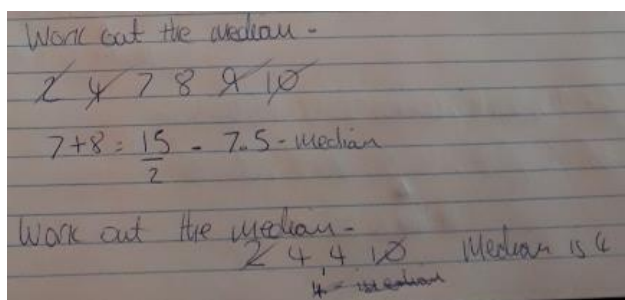 Work out the median -
2 4 7 8 9 10
7+8 = 15/2 = 7.5 - median
Work out the median -
2 4 4 10 Median is 4
4 - median